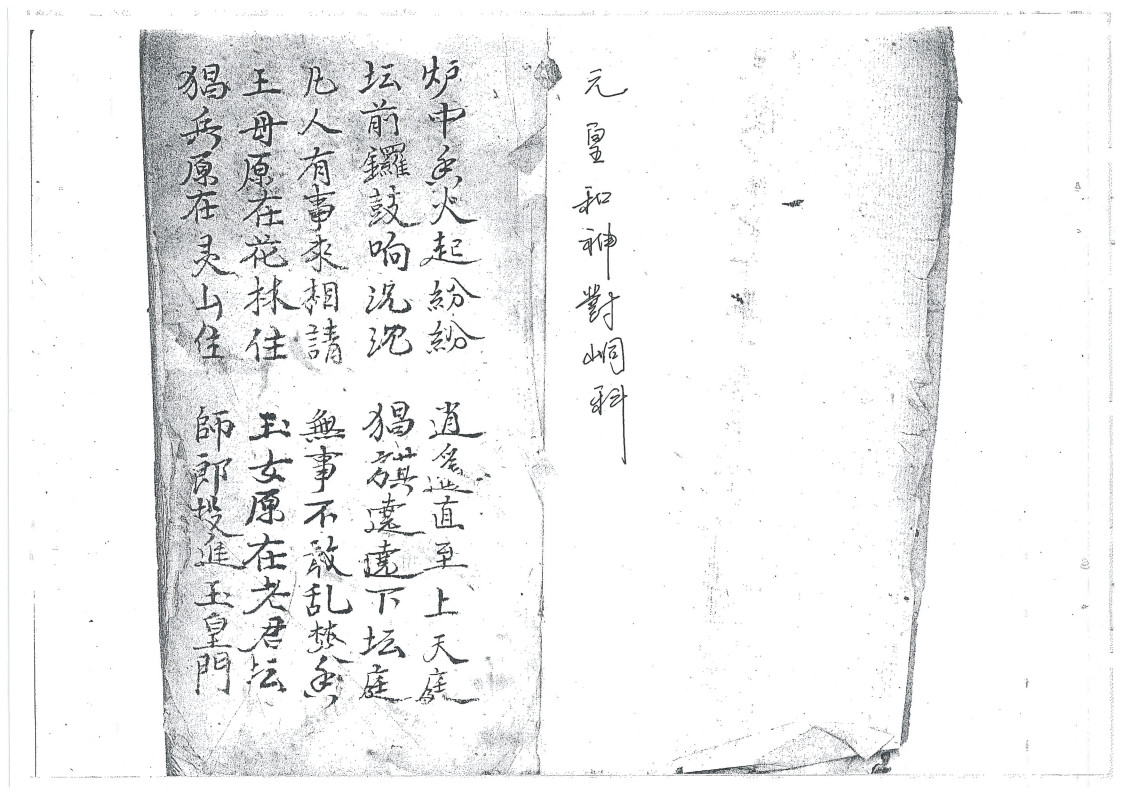 元皇和神對峒科
炉中香火起紛紛 逍遙直至上天庭
坛前鑼鼓响沉沉 猖旗遶遶下坛庭
凡人有事來相請 無事不敢乱焚香
王母原在花林住 玉女原在老君坛
猖兵原在灵山住 師郎投進玉皇門